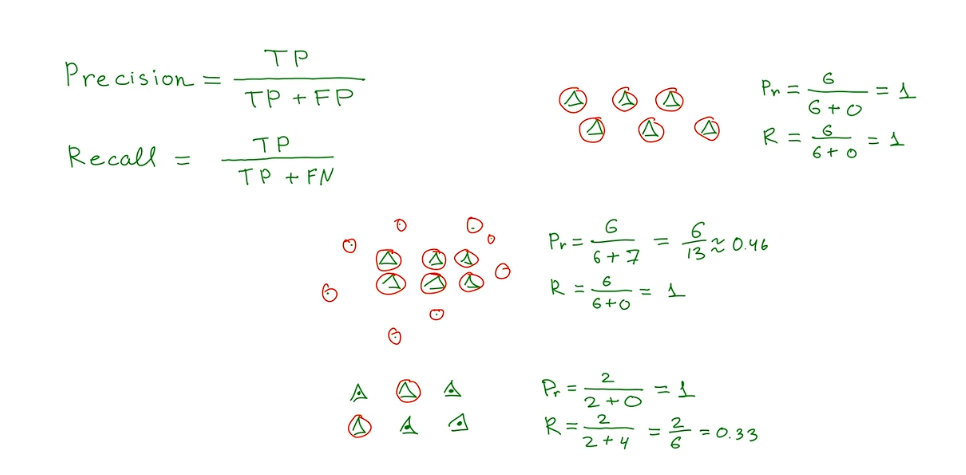 Precision = TP / (TP + FP)
Recall = TP / (TP + FN)
Pr = 6 / (6 + 0) = 1
R = 6 / (6 + 0) = 1
Pr = 6 / (6 + 7) = 6 / 13 ≈ 0.46
R = 6 / (6 + 0) = 1
Pr = 2 / (2 + 0) = 1
R = 2 / (2 + 4) = 2 / 6 = 0.33